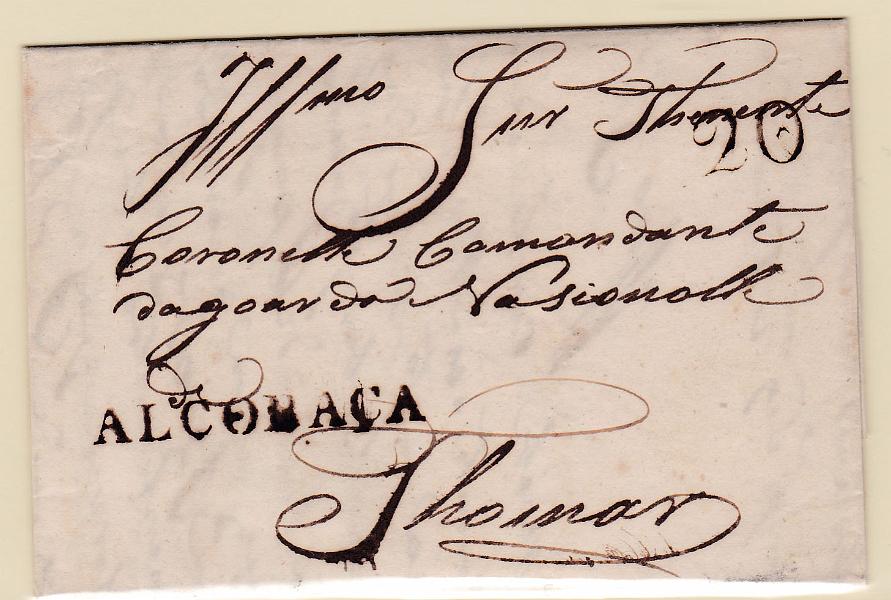 Illmo Snr Thenente
20
Coronelle Comandante
dagoarda Nasionalle
de
ALCOBAÇA
Thomar